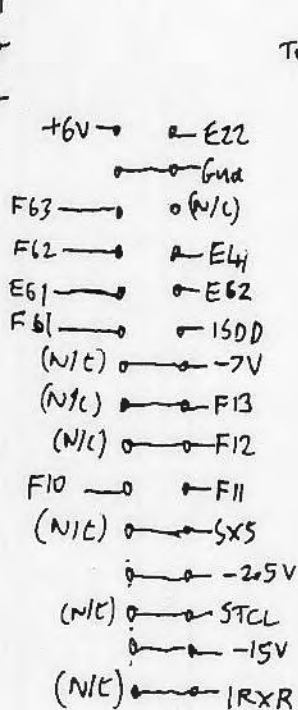 To
+6V E22
Gnd
F63 (N/C)
F62 E41
E61 E62
F61 ISDD
(N/C) -7V
(N/C) F13
(N/C) F12
F10 F11
(N/C) SX5
-2.5V
(N/C) STCL
-15V
(N/C) IRXR